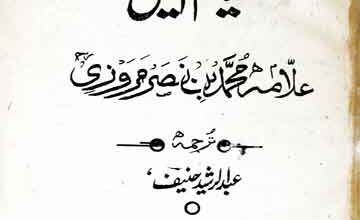 قیام اللیل
علامہ محمد بن نصر مروزی
ترجمہ
عبدالرشید حنیف